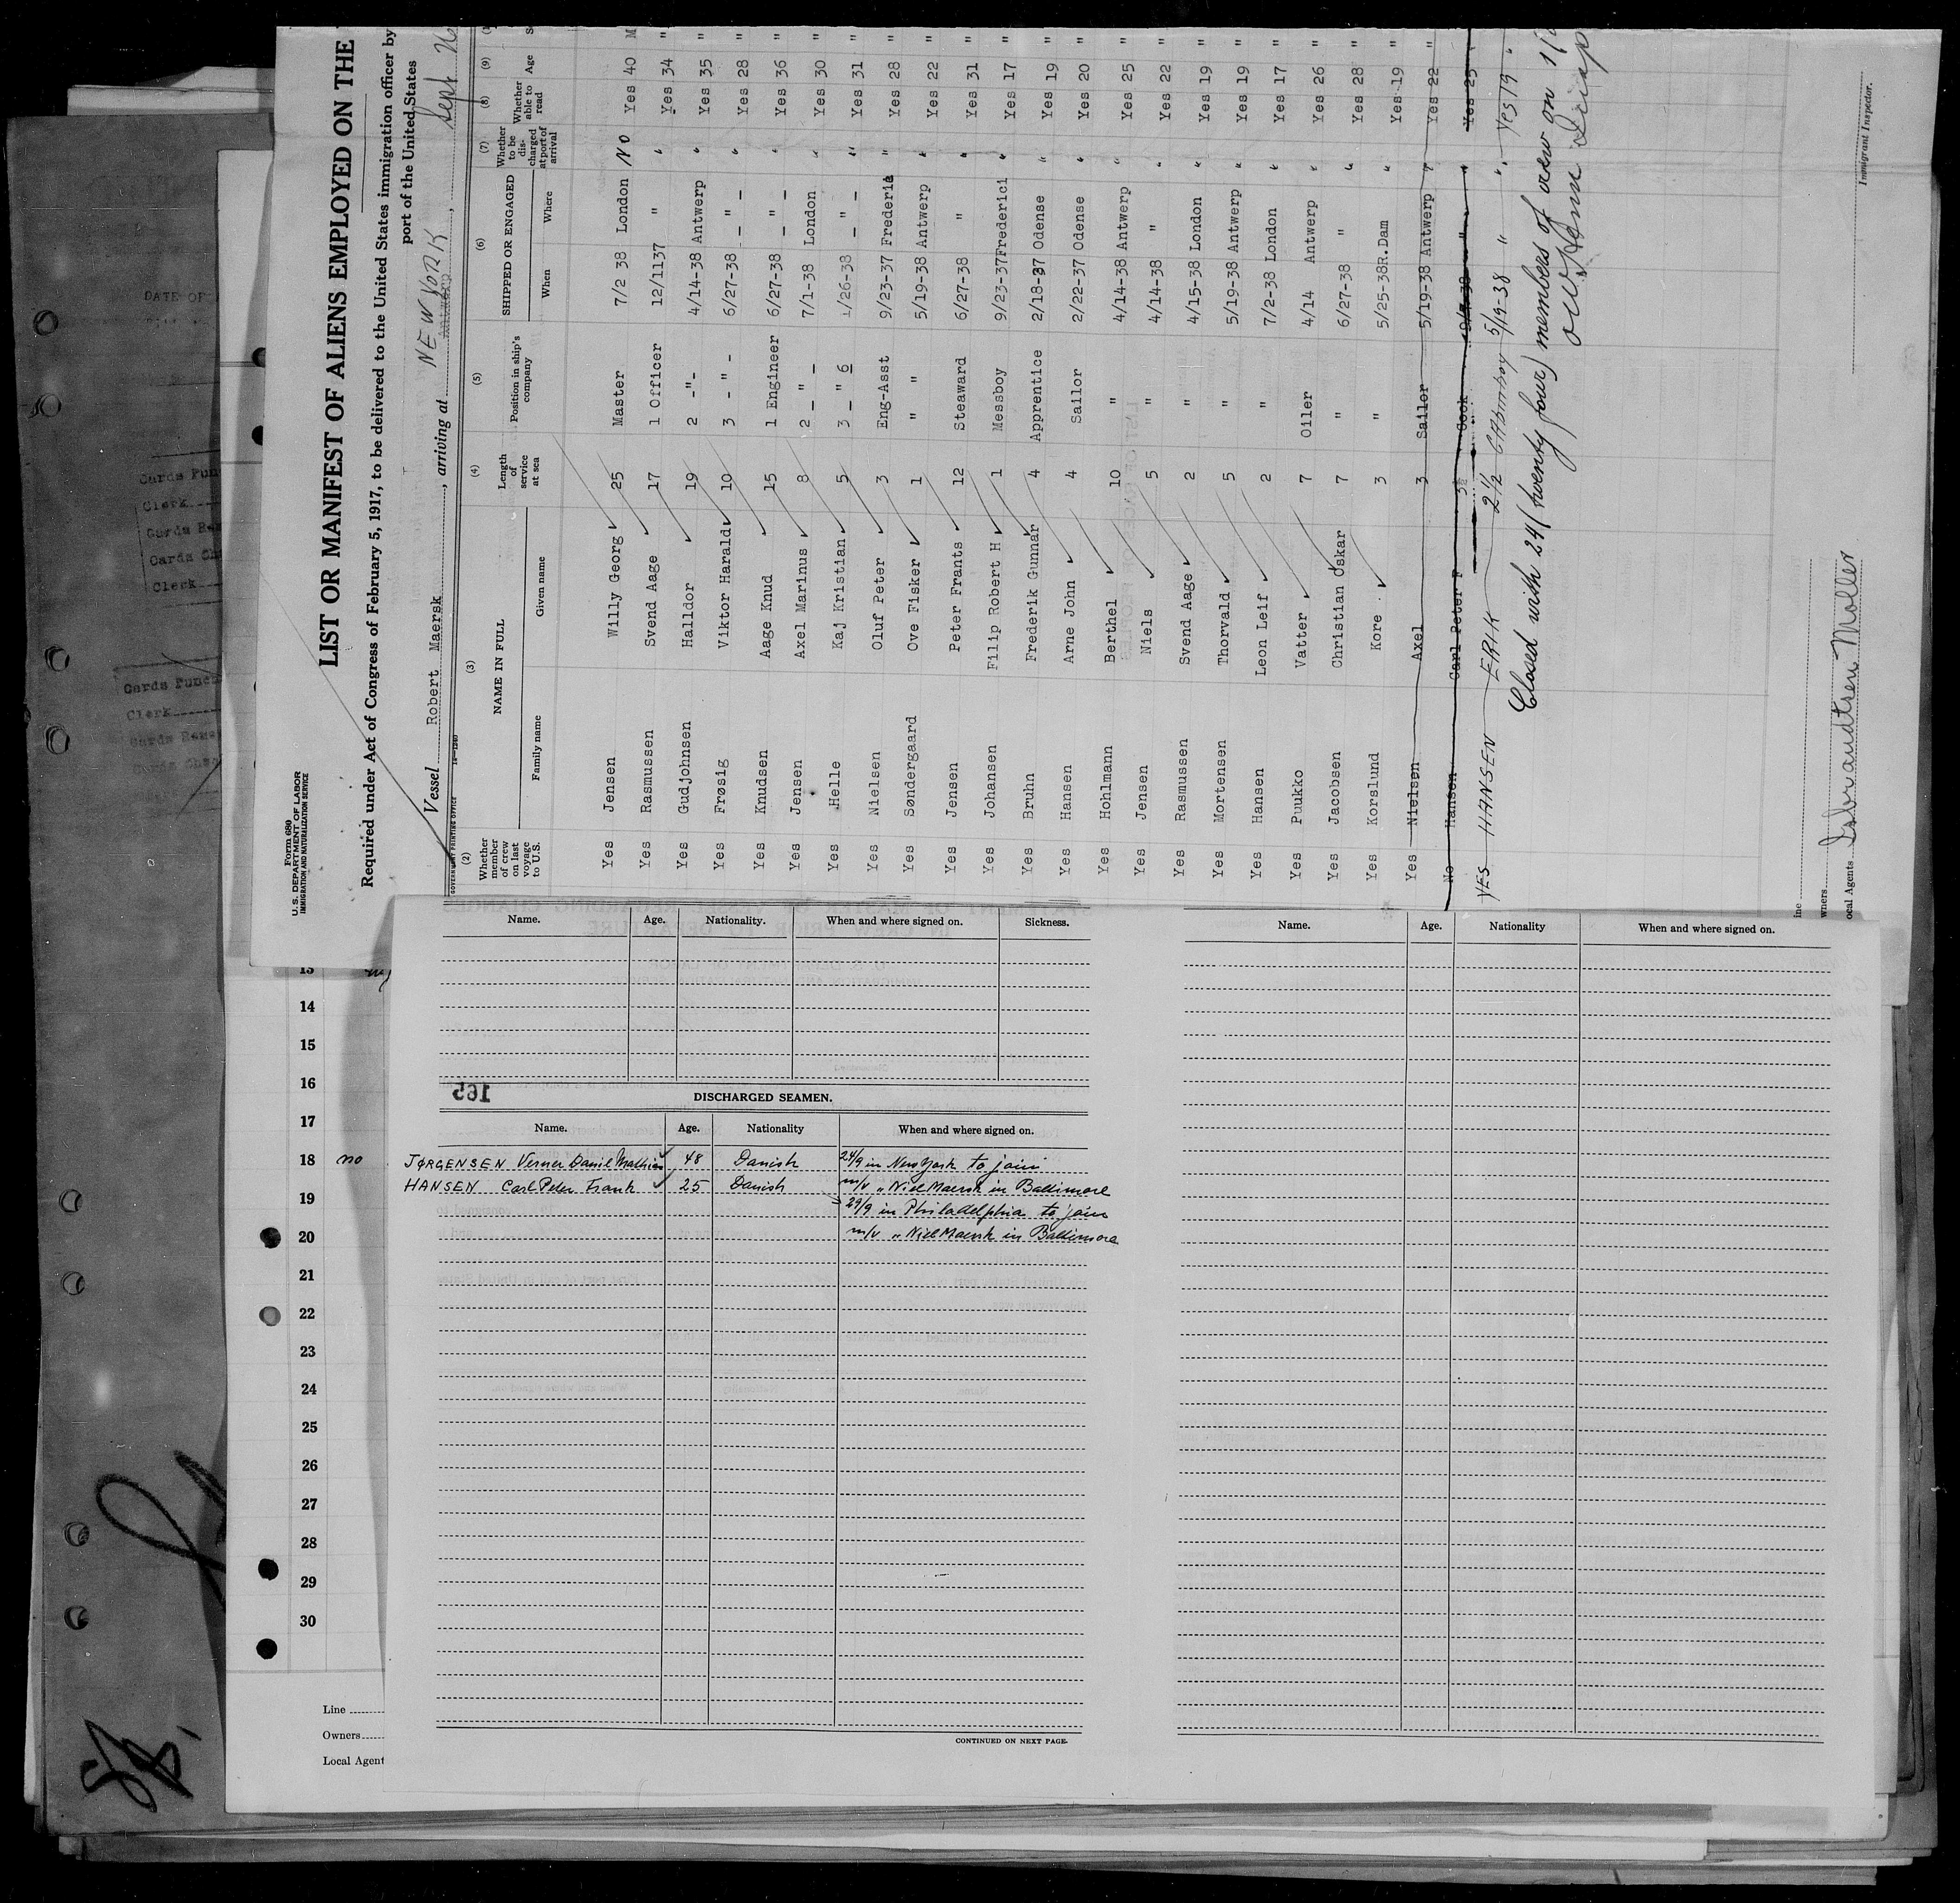 Form 680
U.S. DEPARTMENT OF LABOR
IMMIGRATION AND NATURALIZATION SERVICE
LIST OR MANIFEST OF ALIENS EMPLOYED ON THE
Required under Act of Congress of February 5, 1917, to be delivered to the United States immigration officer by
port of the United States
Vessel Robert Maersk, arriving at NEW YORK, Sept
GOVERNMENT PRINTING OFFICE
(2) (3) (4) (5) (6) (7) (8) (9)
Whether member of crew on last voyage to U.S. NAME IN FULL Family name Given name Length of service at sea Position in ship's company SHIPPED OR ENGAGED When Where Whether to be discharged at port of arrival Whether able to read Age
Yes Jensen Willy Georg 25 Master 7/2 38 London No Yes 40 M
Yes Rasmussen Svend Aage 17 1 Officer 12/1137 " " Yes 34 "
Yes Gudjohnsen Halldor 19 2 -"- 4/14-38 Antwerp " Yes 35 "
Yes Frøsig Viktor Harald 10 3 - " - 6/27-38 - " - " Yes 28 "
Yes Knudsen Aage Knud 15 1 Engineer 6/27-38 - " - " Yes 36 "
Yes Jensen Axel Marinus 8 2 - " - 7/1-38 London " Yes 30 "
Yes Helle Kaj Kristian 5 3 - " 6 1/26-38 - " - " Yes 31 "
Yes Nielsen Oluf Peter 3 Eng-Asst 9/23-37 Frederic " Yes 28 "
Yes Søndergaard Ove Fisker 1 " " 5/19-38 Antwerp " Yes 22 "
Yes Jensen Peter Frants 12 Steaward 6/27-38 " " Yes 31 "
Yes Johansen Filip Robert H 1 Messboy 9/23-37Frederici " Yes 17 "
Yes Bruhn Frederik Gunnar 4 Apprentice 2/18-37 Odense " Yes 19 "
Yes Hansen Arne John 4 Sailor 2/22-37 Odense " Yes 20 "
Yes Hohlmann Berthel 10 " 4/14-38 Antwerp " Yes 25 "
Yes Jensen Niels 5 " 4/14-38 " " Yes 22 "
Yes Rasmussen Svend Aage 2 " 4/15-38 London " Yes 19 "
Yes Mortensen Thorvald 5 " 5/19-38 Antwerp " Yes 19 "
Yes Hansen Leon Leif 2 " 7/2-38 London " Yes 17 "
Yes Puukko Vatter 7 Oiler 4/14 Antwerp " Yes 26 "
Yes Jacobsen Christian Oskar 7 " 6/27-38 " " Yes 28 "
Yes Korslund Kore 3 " 5/25-38R.Dam " Yes 19 "
Yes Nielsen Axel 3 Sailor 5/19-38 Antwerp " Yes 22 "
No Hansen Carl Peter F 3½ Cook " " Yes 25 "
YES HANSEN ERIK 2½ 5/19-38 " " Yes 19 "
Closed with 24 (twenty four) members of crew on
Immigrant Inspector.
ine
wners
ocal Agents Isbrandtsen Moller
Name. Age. Nationality. When and where signed on. Sickness.
165
DISCHARGED SEAMEN.
Name. Age. Nationality When and where signed on.
JØRGENSEN Verner Daniel Mathias 48 Danish 24/9 in New York to join
HANSEN Carl Peter Frank 25 Danish m/v „Niel Maersk in Baltimore
29/9 in Philadelphia to join
m/v „Niel Maersk in Baltimore
CONTINUED ON NEXT PAGE.
Name. Age. Nationality When and where signed on.
13
14
15
16
17
18 no
19
20
21
22
23
24
25
26
27
28
29
30
Line
Owners
Local Agent
DATE OF
Cards Pun
Clerk
Cards
Cards
Clerk
Cards Punch
Clerk
Cards
Cards